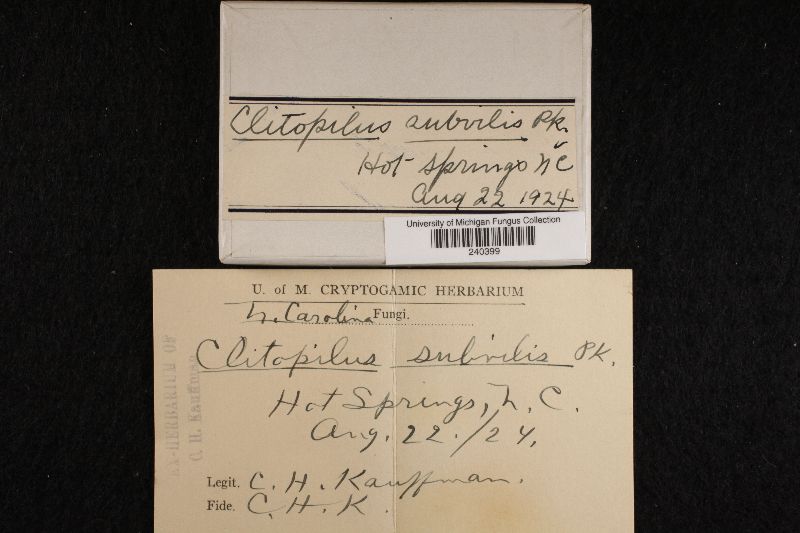 Clitopilus subvilis Pk.
Hot Springs N C
Aug 22 1924
University of Michigan Fungus Collection
240399
U. of M. CRYPTOGAMIC HERBARIUM
N. Carolina Fungi.
Clitopilus subvilis Pk.
Hot Springs, N. C.
Aug. 22./24.
Legit. C. H. Kauffman.
Fide. C. H. K.
EX-HERBARIUM OF
C. H. Kauffman